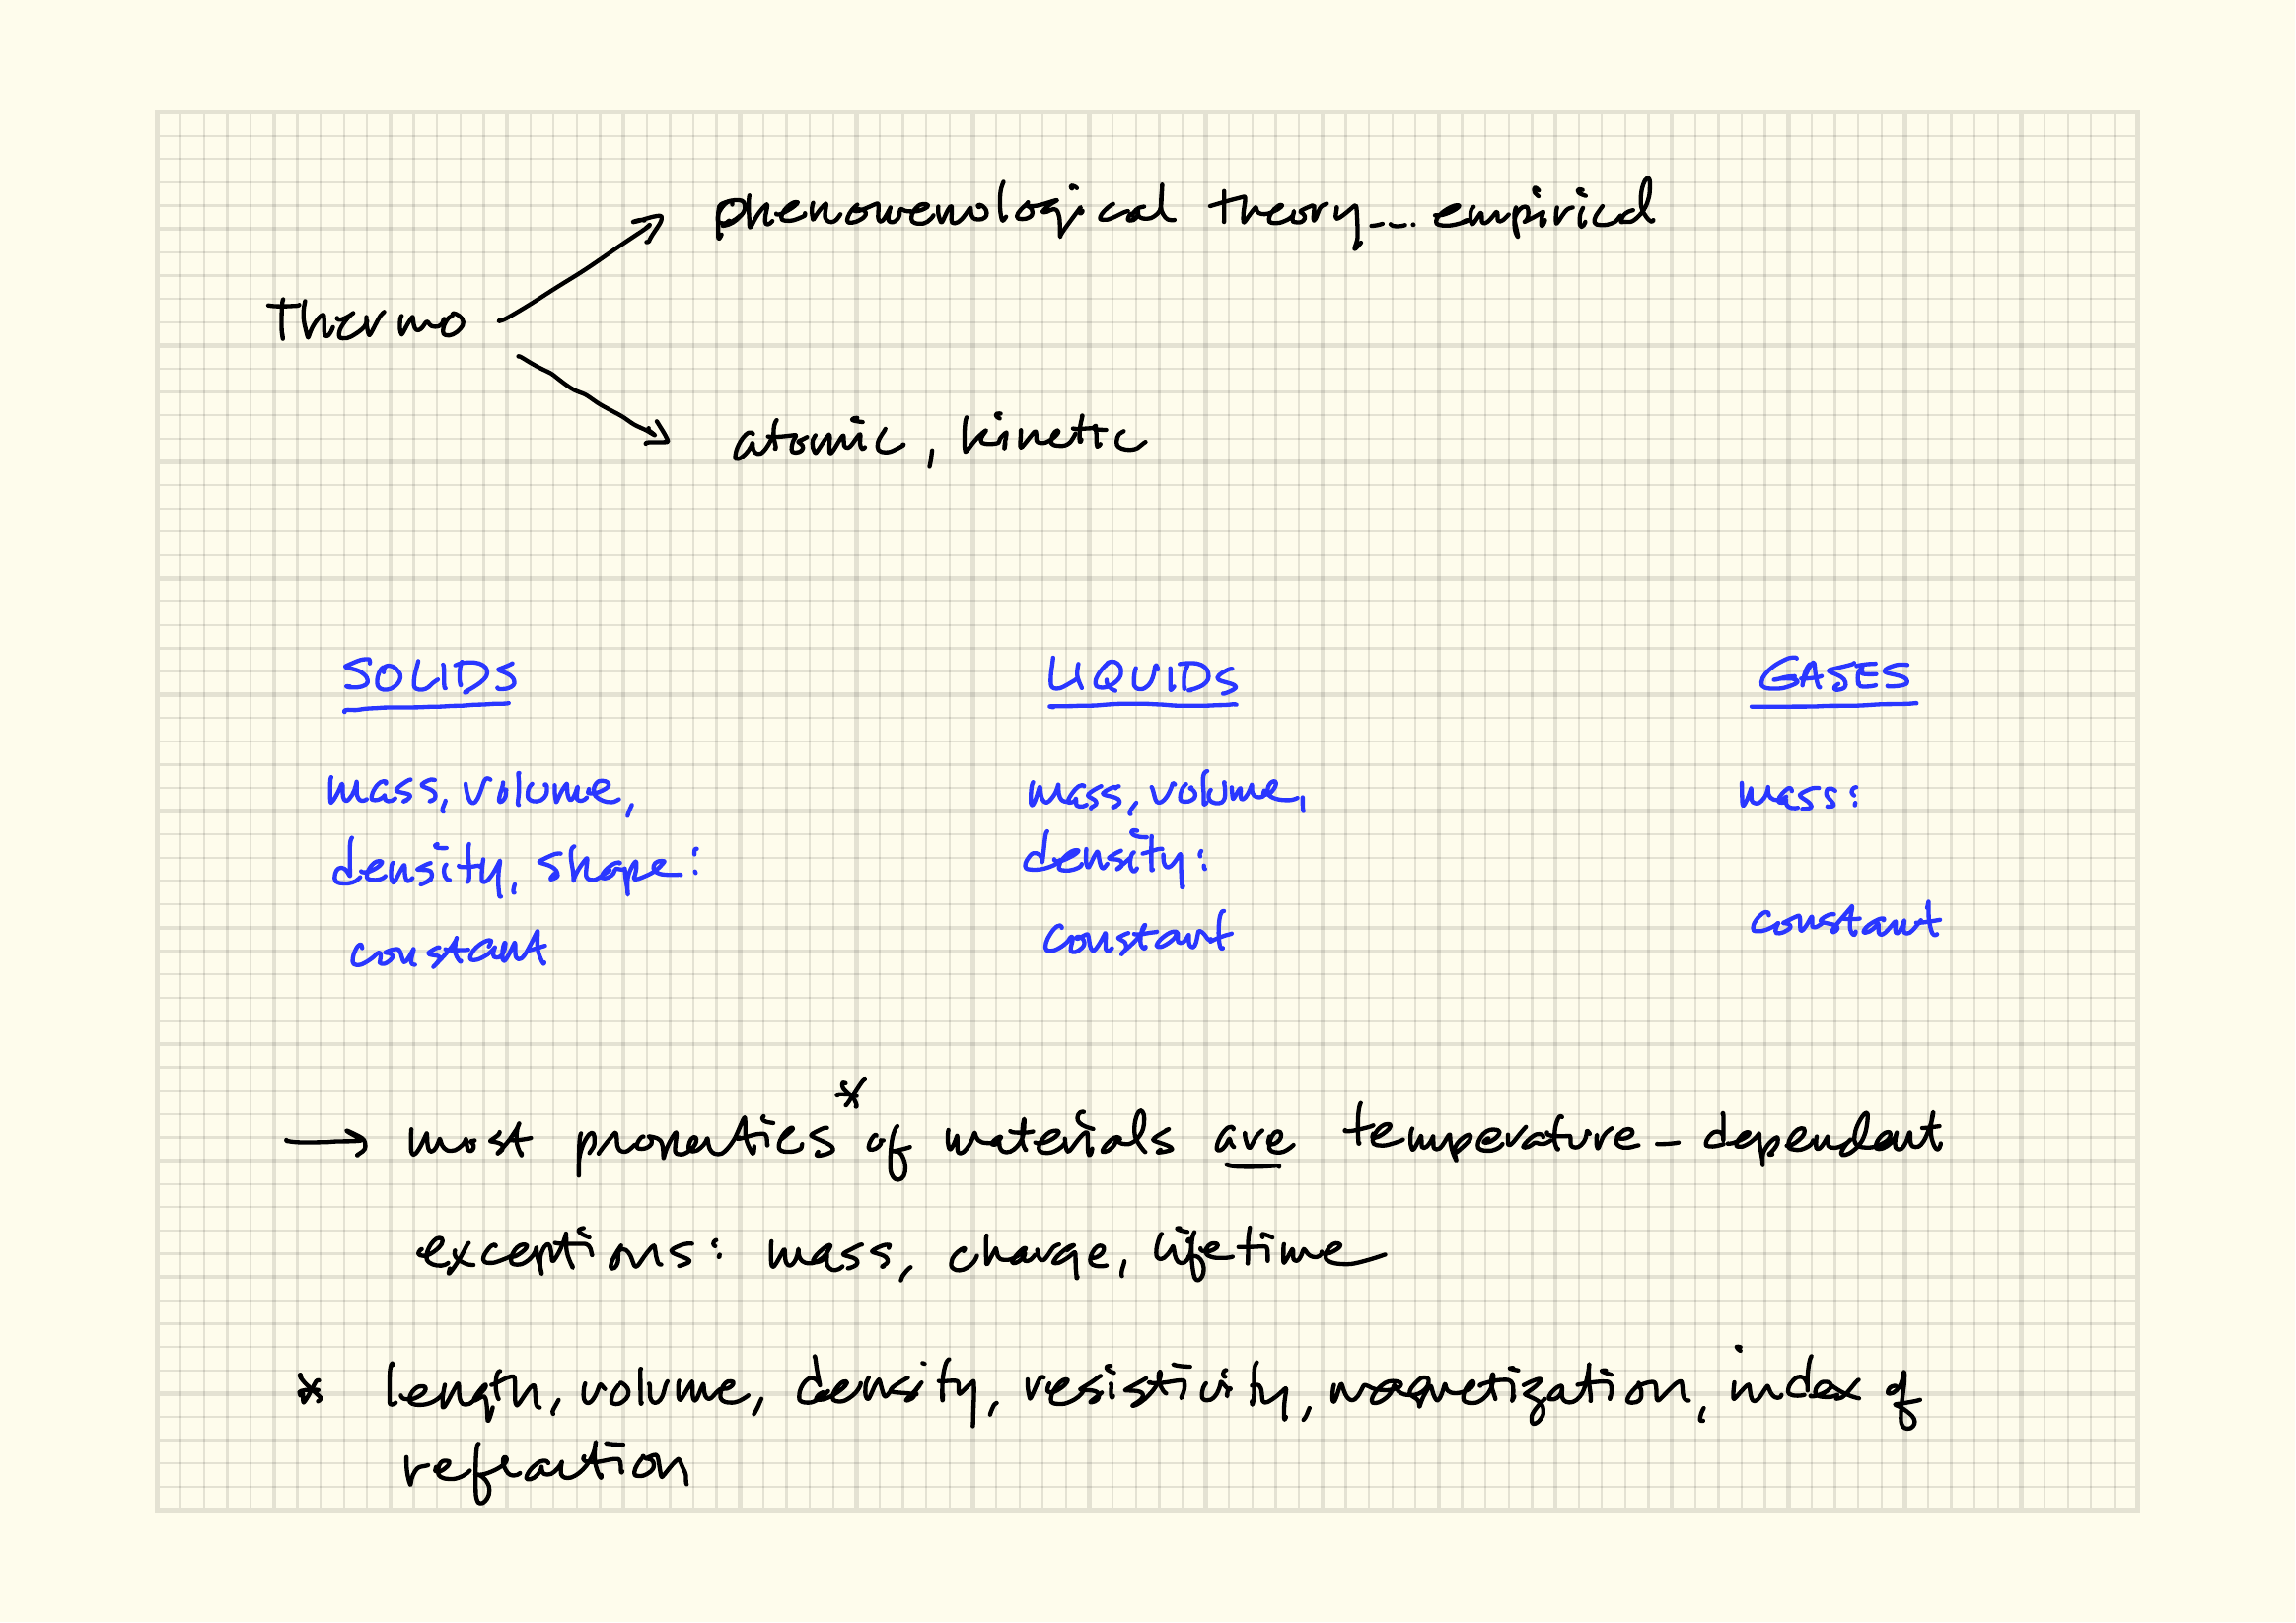 phenomenological theory... empirical
Thermo
atomic, kinetic
SOLIDS LIQUIDS GASES
mass, volume, mass, volume, mass:
density, shape: density:
constant constant constant
→ most properties* of materials are temperature-dependent
exceptions: mass, charge, lifetime
* length, volume, density, resistivity, magnetization, index of
refraction